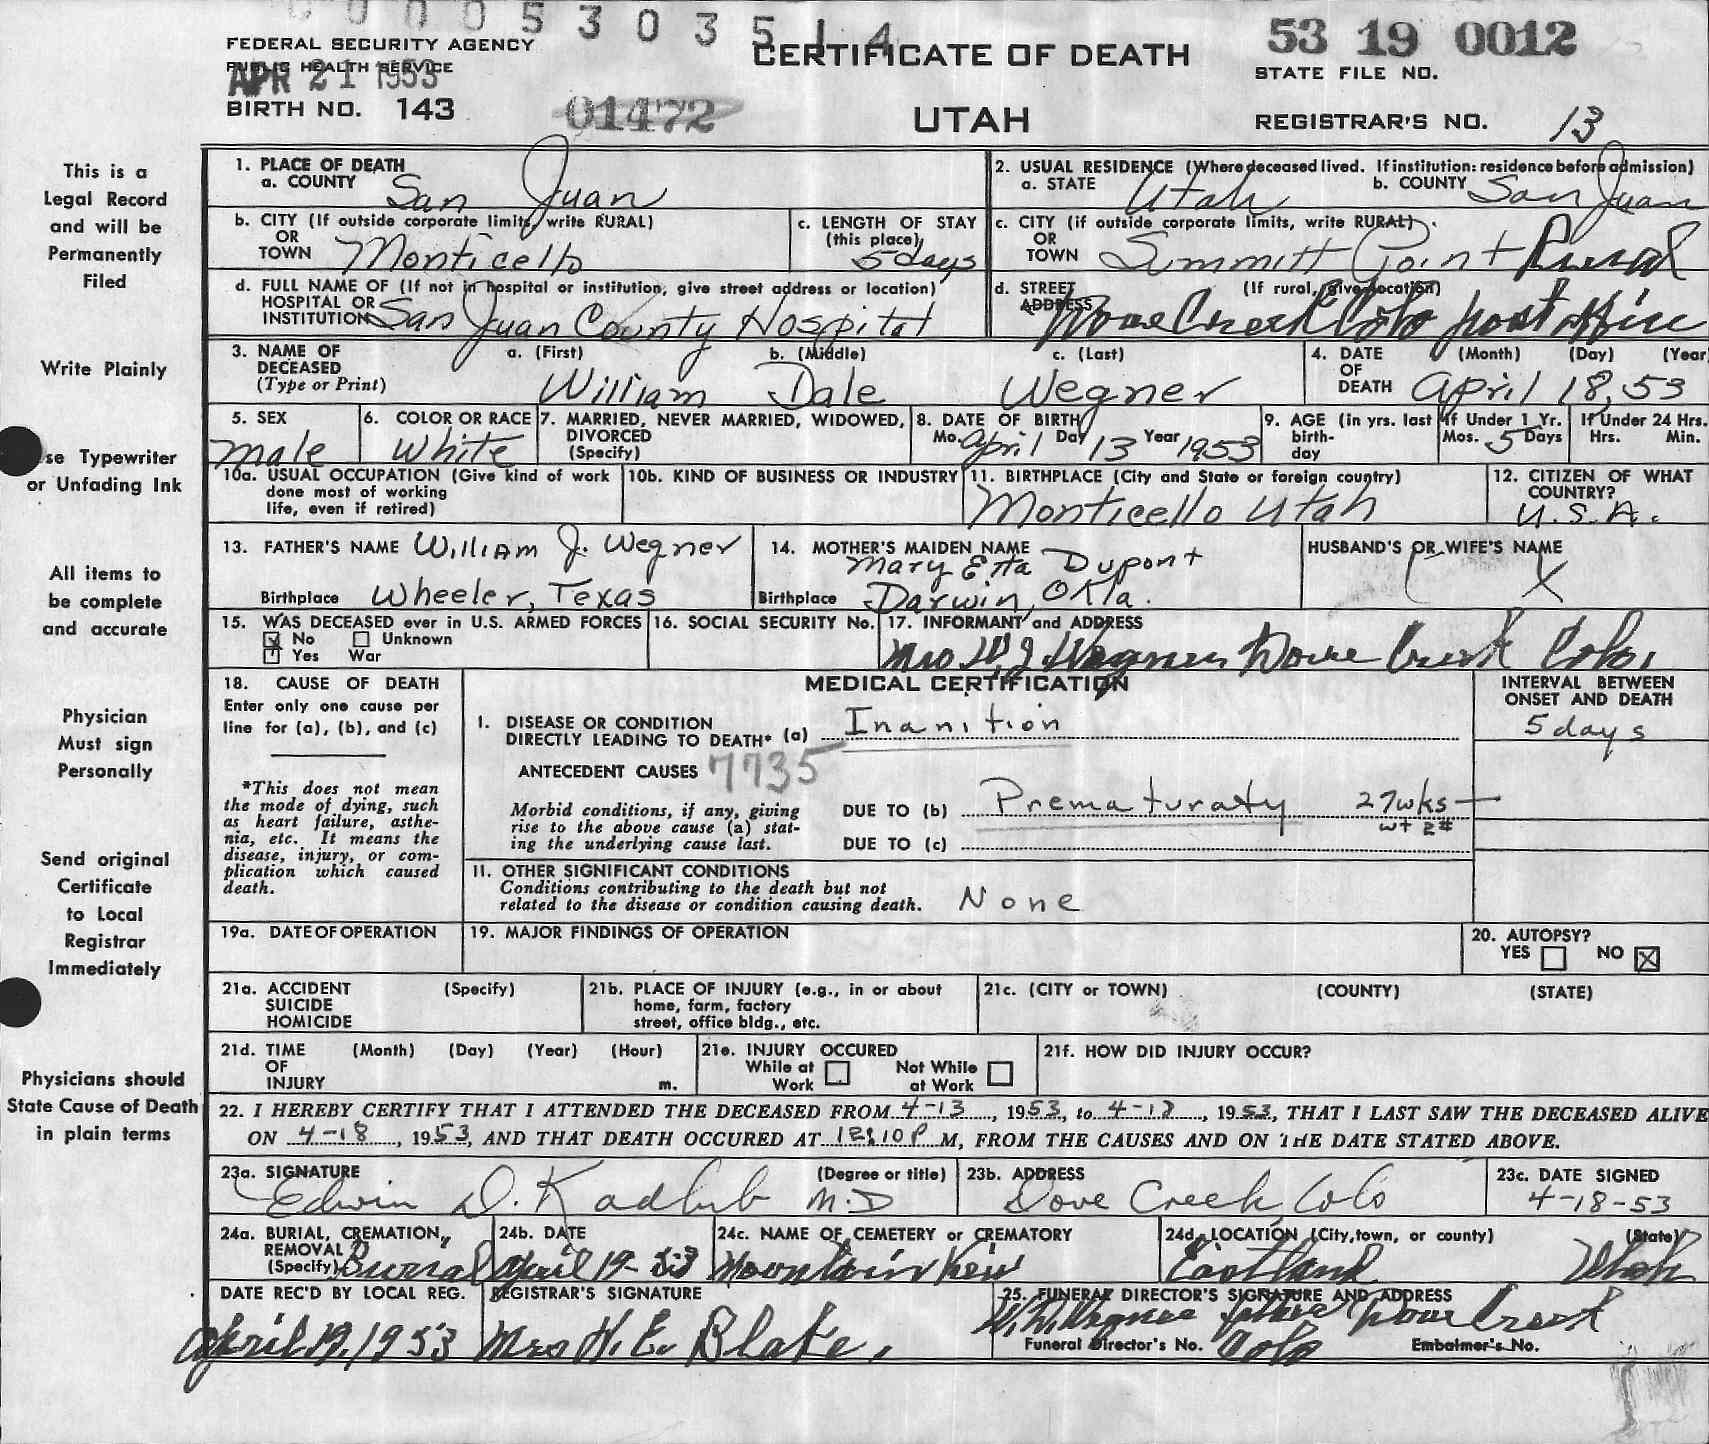 00005303514
FEDERAL SECURITY AGENCY
PUBLIC HEALTH SERVICE
APR 21 1953
BIRTH NO. 143
01472
CERTIFICATE OF DEATH
UTAH
53 19 0012
STATE FILE NO.
REGISTRAR'S NO. 13
This is a
Legal Record
and will be
Permanently
Filed
Write Plainly
se Typewriter
or Unfading Ink
All items to
be complete
and accurate
Physician
Must sign
Personally
Send original
Certificate
to Local
Registrar
Immediately
Physicians should
State Cause of Death
in plain terms
1. PLACE OF DEATH
a. COUNTY San Juan
2. USUAL RESIDENCE (Where deceased lived. If institution: residence before admission)
a. STATE Utah b. COUNTY San Juan
b. CITY (If outside corporate limits, write RURAL)
OR
TOWN Monticello
c. LENGTH OF STAY
(this place)
5 days
c. CITY (if outside corporate limits, write RURAL)
OR
TOWN Summitt Point Rural
d. FULL NAME OF (If not in hospital or institution, give street address or location)
HOSPITAL OR
INSTITUTION San Juan County Hospital
d. STREET (If rural, give location)
ADDRESS Dove Creek Colo post office
3. NAME OF
DECEASED
(Type or Print)
a. (First) b. (Middle) c. (Last)
William Dale Wegner
4. DATE (Month) (Day) (Year
OF
DEATH April 18, 53
5. SEX
Male
6. COLOR OR RACE
White
7. MARRIED, NEVER MARRIED, WIDOWED,
DIVORCED
(Specify)
8. DATE OF BIRTH
Mo. April Day 13 Year 1953
9. AGE (in yrs. last
birth-
day
If Under 1 Yr.
Mos. 5 Days
If Under 24 Hrs.
Hrs. Min.
10a. USUAL OCCUPATION (Give kind of work
done most of working
life, even if retired)
10b. KIND OF BUSINESS OR INDUSTRY
11. BIRTHPLACE (City and State or foreign country)
Monticello Utah
12. CITIZEN OF WHAT
COUNTRY?
U.S.A.
13. FATHER'S NAME William J. Wegner
Birthplace Wheeler, Texas
14. MOTHER'S MAIDEN NAME
Mary Etta Dupont
Birthplace Darwin, Okla.
HUSBAND'S OR WIFE'S NAME
X
15. WAS DECEASED ever in U.S. ARMED FORCES
No Unknown
Yes War
16. SOCIAL SECURITY No.
17. INFORMANT and ADDRESS
Mrs W. J. Wegner Dove Creek Colo.
18. CAUSE OF DEATH
Enter only one cause per
line for (a), (b), and (c)
*This does not mean
the mode of dying, such
as heart failure, asthe-
nia, etc. It means the
disease, injury, or com-
plication which caused
death.
MEDICAL CERTIFICATION
I. DISEASE OR CONDITION
DIRECTLY LEADING TO DEATH* (a) Inanition
ANTECEDENT CAUSES 7735
Morbid conditions, if any, giving
rise to the above cause (a) stat-
ing the underlying cause last.
DUE TO (b) Prematuraty 27wks
wt 2#
DUE TO (c)
INTERVAL BETWEEN
ONSET AND DEATH
5 days
11. OTHER SIGNIFICANT CONDITIONS
Conditions contributing to the death but not
related to the disease or condition causing death. None
19a. DATE OF OPERATION
19. MAJOR FINDINGS OF OPERATION
20. AUTOPSY?
YES NO X
21a. ACCIDENT (Specify)
SUICIDE
HOMICIDE
21b. PLACE OF INJURY (e.g., in or about
home, farm, factory
street, office bldg., etc.
21c. (CITY or TOWN) (COUNTY) (STATE)
21d. TIME (Month) (Day) (Year) (Hour)
OF
INJURY m.
21e. INJURY OCCURED
While at Not While
Work at Work
21f. HOW DID INJURY OCCUR?
22. I HEREBY CERTIFY THAT I ATTENDED THE DECEASED FROM 4-13, 1953, to 4-18, 1953, THAT I LAST SAW THE DECEASED ALIVE
ON 4-18, 1953, AND THAT DEATH OCCURED AT 12:10 P M, FROM THE CAUSES AND ON THE DATE STATED ABOVE.
23a. SIGNATURE (Degree or title)
Edwin D. Kadlub M.D
23b. ADDRESS
Dove Creek, Colo
23c. DATE SIGNED
4-18-53
24a. BURIAL, CREMATION,
REMOVAL
(Specify) Burial
24b. DATE
April 19-53
24c. NAME OF CEMETERY or CREMATORY
Mountain View
24d. LOCATION (City, town, or county) (State)
Eastland Utah
DATE REC'D BY LOCAL REG.
April 19, 1953
REGISTRAR'S SIGNATURE
Mrs H. E. Blake,
25. FUNERAL DIRECTOR'S SIGNATURE AND ADDRESS
Wegner father Dove Creek
Funeral Director's No. Colo Embalmer's No.